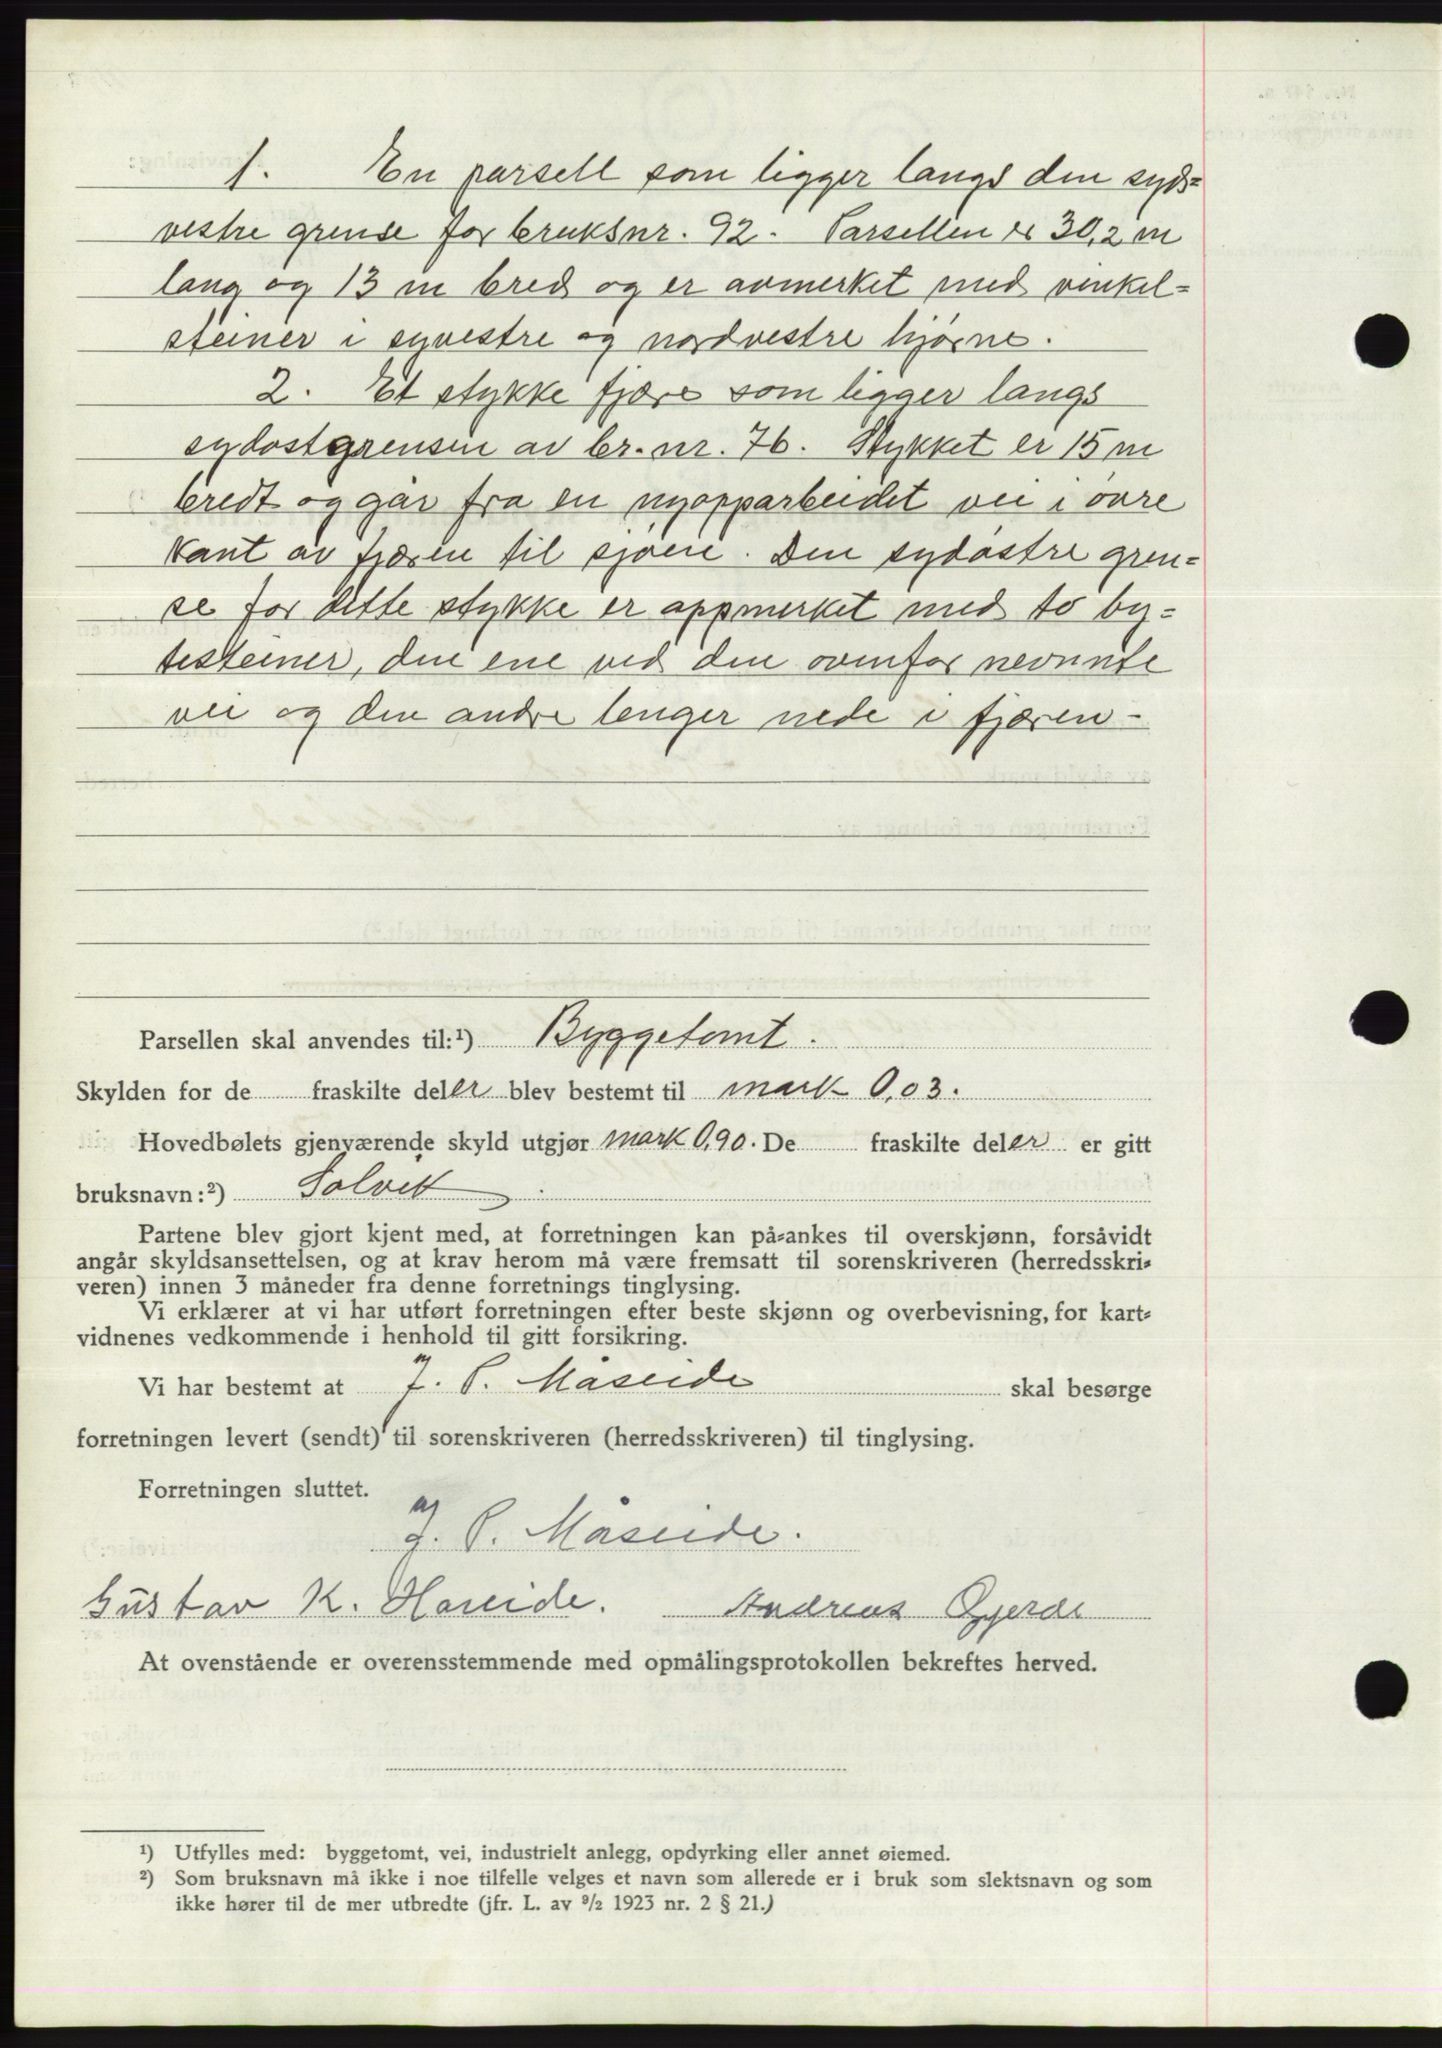 1. En parsell som ligger langs den syd=
vestre grense for bruksnr. 92. Parsellen er 30,2 m
lang og 13 m bred og er avmerket med vinkel=
steiner i syvestre og nordvestre hjørne.
2. Et stykke fjære som ligger langs
sydostgrensen av br. nr. 76. Stykket er 15 m
bredt og går fra en nyopparbeidet vei i øvre
kant av fjæren til sjøen. Den sydøstre gren=
se for dette stykke er oppmerket med to by=
testeiner, den ene ved den ovenfor nevnnte
vei og den andre lenger nede i fjæren -
Parsellen skal anvendes til:¹) Byggetomt.
Skylden for de fraskilte deler blev bestemt til mark 0,03.
Hovedbølets gjenværende skyld utgjør mark 0,90. De fraskilte deler er gitt
bruksnavn:²) Solvik
Partene blev gjort kjent med, at forretningen kan på=ankes til overskjønn, forsåvidt
angår skyldsansettelsen, og at krav herom må være fremsatt til sorenskriveren (herredsskri=
veren) innen 3 måneder fra denne forretnings tinglysing.
Vi erklærer at vi har utført forretningen efter beste skjønn og overbevisning, for kart=
vidnenes vedkommende i henhold til gitt forsikring.
Vi har bestemt at J. P. Måseide skal besørge
forretningen levert (sendt) til sorenskriveren (herredsskriveren) til tinglysing.
Forretningen sluttet.
J. P. Måseide.
Gustav K. Hareide. Andreas Gjerde
At ovenstående er overensstemmende med opmålingsprotokollen bekreftes herved.
¹) Utfylles med: byggetomt, vei, industrielt anlegg, opdyrking eller annet øiemed.
²) Som bruksnavn må ikke i noe tilfelle velges et navn som allerede er i bruk som slektsnavn og som
ikke hører til de mer utbredte (jfr. L. av ⁹/₂ 1923 nr. 2 § 21.)